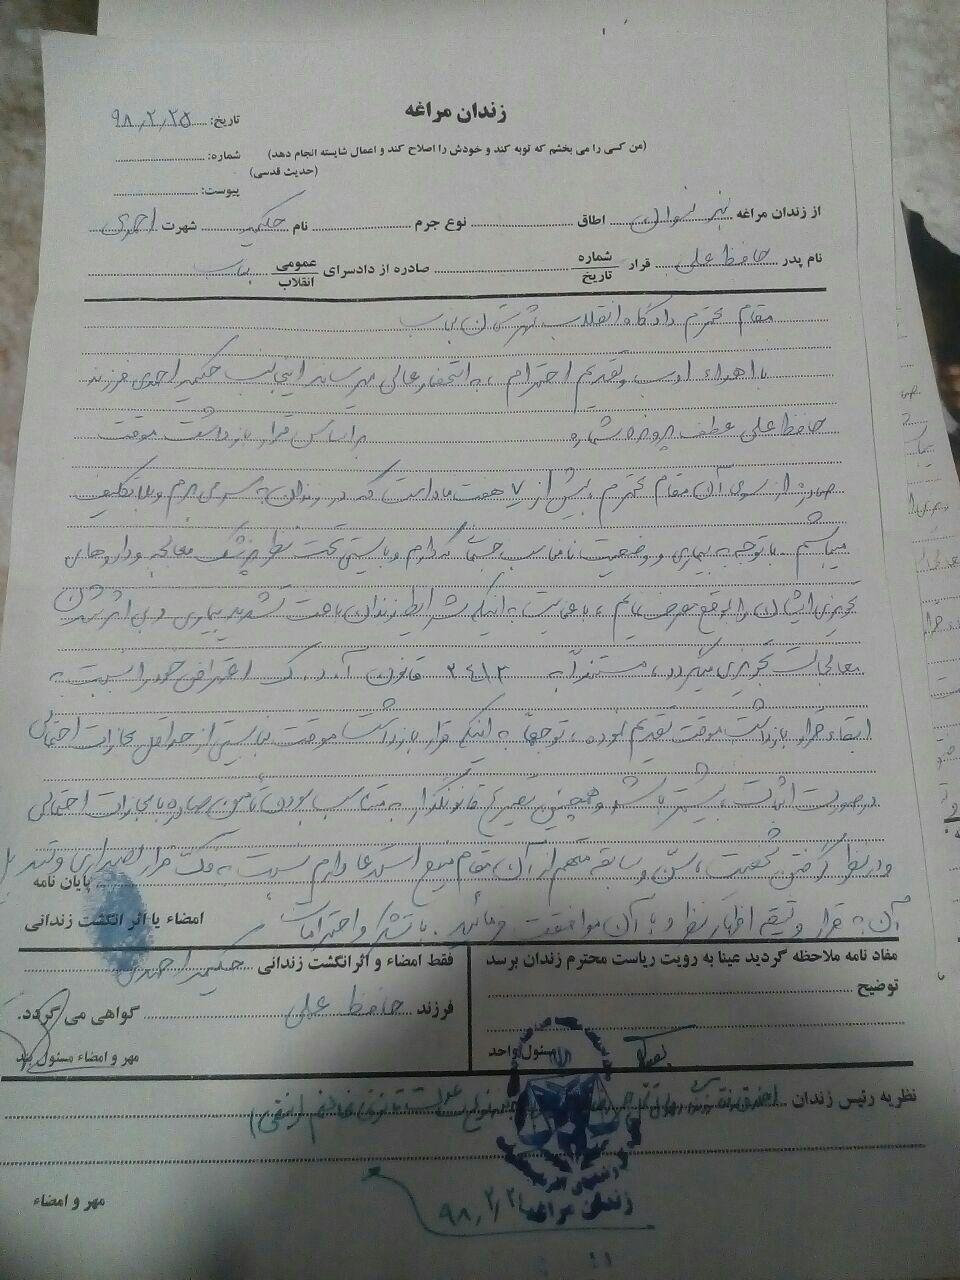 زندان مراغه
تاریخ: ۹۸٫۲٫۲۵
(من کسی را می بخشم که توبه کند و خودش را اصلاح کند و اعمال شایسته انجام دهد)
شماره:
(حدیث قدسی)
پیوست:
از زندان مراغه بند نسوان اطاق نوع جرم نام حکیمه شهرت احمدی
نام پدر حافظ علی قرار شماره تاریخ صادره از دادسرای عمومی انقلاب بناب
مقام محترم دادگاه انقلاب شهرستان بناب
با اهداء ادب و تقدیم احترام، به استحضار عالی میرساند اینجانب حکیمه احمدی فرزند
حافظ علی عطف پرونده شماره براساس قرار بازداشت موقت
صادره از سوی آن مقام محترم بیش از ۷ هفت ماه است که در زندان به سر می برم و بلاتکلیف
میباشم. با توجه به بیماری و وضعیت نامناسب جسمی که دارم و بایستی تحت نظر پزشک معالجه و داروهای
تجویزی ایشان را به موقع مصرف نمایم، با عنایت به اینکه شرایط زندان باعث تشدید بیماری و بی اثر شدن
معالجات تجویزی میگردد، مستنداً به ۲۴۱۳ قانون آ.د.ک اعتراض خود را نسبت به
ابقاء قرار بازداشت موقت تقدیم نموده، توجهاً به اینکه قرار بازداشت موقت نبایستی از حداقل مجازات احتمالی
درصورت اثبات، بیشتر باشد و همچنین تصریح قانونگذار به متناسب بودن تأمین صادره با مجازات احتمالی
و درنظر گرفتن شخصیت، سن و سابقه متهم از آن مقام منیع استدعا دارم نسبت به فک قرار تصدیری و تبدیل
پایان نامه
آن به قرار وثیقه اظهار نظر و با آن موافقت فرمائید. با تشکر و احترامات
امضاء یا اثر انگشت زندانی
مفاد نامه ملاحظه گردید عینا به رویت ریاست محترم زندان برسد
توضیح
مسئول واحد
فقط امضاء و اثرانگشت زندانی حکیمه احمدی
فرزند حافظ علی گواهی می گردد.
مهر و امضاء مسئول بند
نظریه رئیس زندان
زندان مراغه
مهر و امضاء